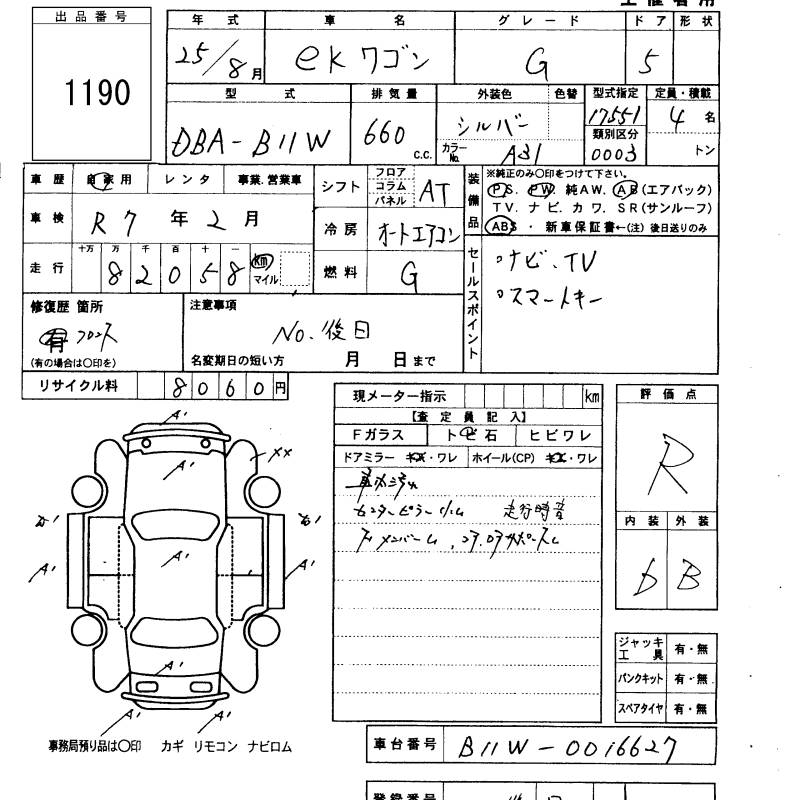 出品番号
1190
年式 車名 グレード ドア 形状
25/8月 eKワゴン G 5
型式 排気量 外装色 色替 型式指定 定員・積載
DBA-B11W 660 c.c. シルバー 17551 4名
カラーNo. A31 類別区分 0003 トン
車歴 自家用 レンタ 事業.営業車
シフト フロア コラム パネル AT
装備品 ※純正のみ○印をつけて下さい。
PS. PW. 純AW. AB(エアバック)
TV. ナビ. カワ. SR(サンルーフ)
ABS. 新車保証書←(注) 後日送りのみ
車検 R7年2月
冷房 オートエアコン
走行 十万 万 千 百 十 一
82058 km マイル
燃料 G
セールスポイント
ナビ、TV
スマートキー
修復歴 箇所
有 フロント
(有の場合は○印を)
注意事項
No.後日
名変期日の短い方 月 日まで
リサイクル料 8060円
現メーター指示 km
【査定員記入】
Fガラス トビ石 ヒビワレ
ドアミラー キズ・ワレ ホイール(CP) キズ・ワレ
センターピラー 走行時音
評価点
R
内装 外装
D B
A' A' XX A' A' A' A' A' A'
ジャッキ工具 有・無
パンクキット 有・無
スペアタイヤ 有・無
事務局預り品は○印 カギ リモコン ナビロム
車台番号 B11W-0016627
登録番号